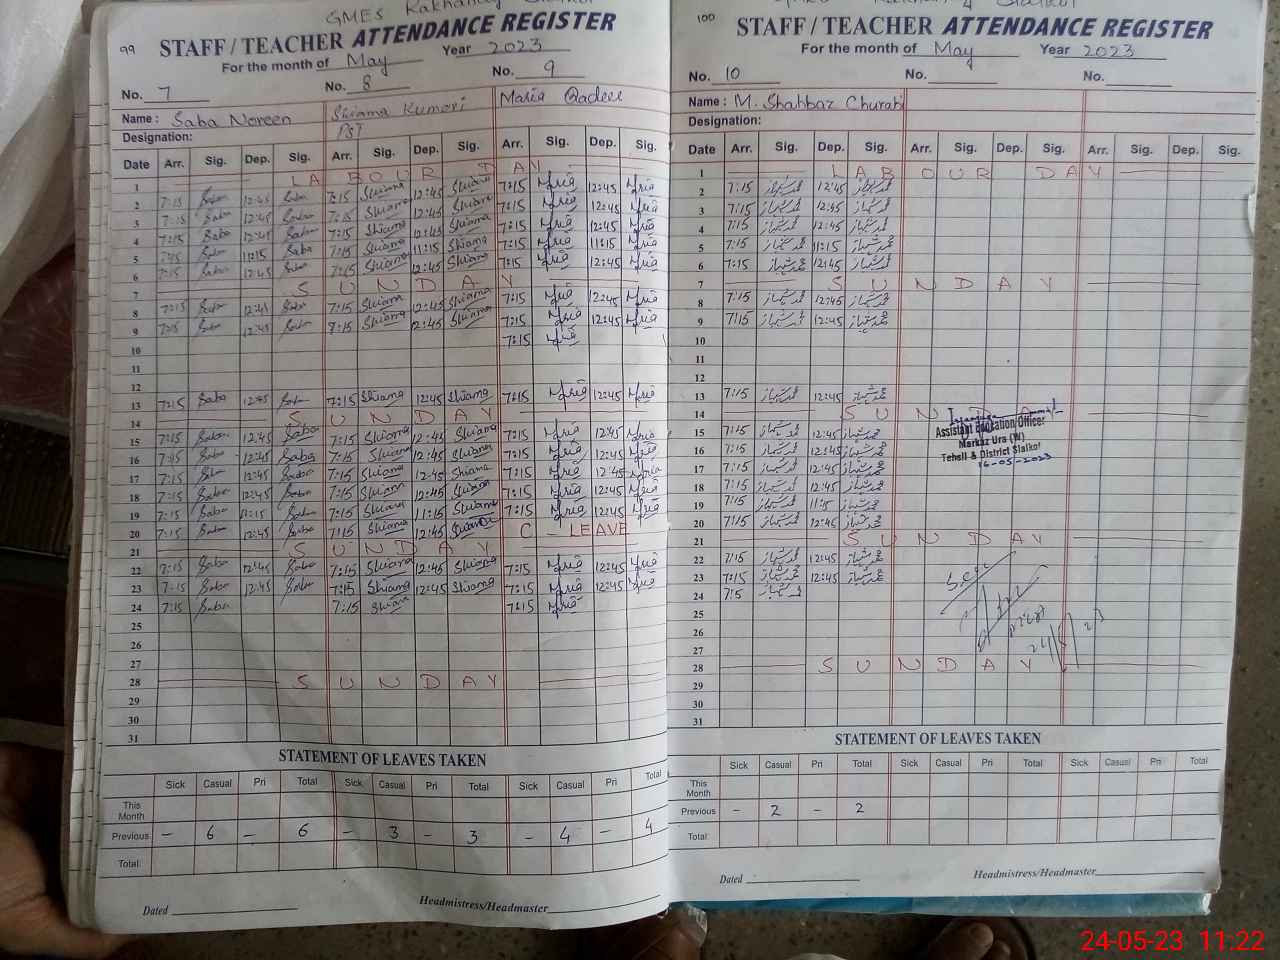 99
GMES Kakhanay Sialkot
STAFF / TEACHER ATTENDANCE REGISTER
For the month of May Year 2023
No. 7 No. 8 No. 9
Name : Saba Noreen Shiama Kumari Maria Qadeer
Designation: PST
Date Arr. Sig. Dep. Sig. Arr. Sig. Dep. Sig. Arr. Sig. Dep. Sig.
1 LABOUR DAY
2 7:15 Saba 12:45 Saba 7:15 Shiama 12:45 Shiama 7:15 12:45
3 7:15 Saba 12:45 Saba 7:15 Shiama 12:45 Shiama 7:15 12:45
4 7:15 Saba 12:45 Saba 7:15 Shiama 12:45 Shiama 7:15 12:45
5 7:15 Saba 11:15 Saba 7:15 Shiama 11:15 Shiama 7:15 11:15
6 7:15 Saba 12:45 Saba 7:15 Shiama 12:45 Shiama 7:15 12:45
7 SUNDAY
8 7:15 Saba 12:45 Saba 7:15 Shiama 12:45 Shiama 7:15 12:45
9 7:15 Saba 12:45 Saba 7:15 Shiama 12:45 Shiama 7:15 12:45
10 7:15
11
12
13 7:15 Saba 12:45 Saba 7:15 Shiama 12:45 Shiama 7:15 12:45
14 SUNDAY
15 7:15 Saba 12:45 Saba 7:15 Shiama 12:45 Shiama 7:15 12:45
16 7:15 Saba 12:45 Saba 7:15 Shiama 12:45 Shiama 7:15 12:45
17 7:15 Saba 12:45 Saba 7:15 Shiama 12:45 Shiama 7:15 12:45
18 7:15 Saba 12:45 Saba 7:15 Shiama 12:45 Shiama 7:15 12:45
19 7:15 Saba 11:15 Saba 7:15 Shiama 11:15 Shiama 7:15 12:45
20 7:15 Saba 12:45 Saba 7:15 Shiama 12:45 Shiama C - LEAVE
21 SUNDAY
22 7:15 Saba 12:45 Saba 7:15 Shiama 12:45 Shiama 7:15 12:45
23 7:15 Saba 12:45 Saba 7:15 Shiama 12:45 Shiama 7:15 12:45
24 7:15 Saba 7:15 Shiama 7:15
25
26
27
28 SUNDAY
29
30
31
STATEMENT OF LEAVES TAKEN
Sick Casual Pri Total Sick Casual Pri Total Sick Casual Pri Total
This Month
Previous - 6 - 6 - 3 - 3 - 4 - 4
Total:
Dated Headmistress/Headmaster
100
STAFF / TEACHER ATTENDANCE REGISTER
For the month of May Year 2023
No. 10 No. No.
Name : M. Shahbaz
Designation:
Date Arr. Sig. Dep. Sig. Arr. Sig. Dep. Sig. Arr. Sig. Dep. Sig.
1 LABOUR DAY
2 7:15 محمد شہباز 12:45 محمد شہباز
3 7:15 محمد شہباز 12:45 محمد شہباز
4 7:15 محمد شہباز 12:45 محمد شہباز
5 7:15 محمد شہباز 11:15 محمد شہباز
6 7:15 محمد شہباز 12:45 محمد شہباز
7 SUNDAY
8 7:15 محمد شہباز 12:45 محمد شہباز
9 7:15 محمد شہباز 12:45 محمد شہباز
10
11
12
13 7:15 محمد شہباز 12:45 محمد شہباز
14 SUNDAY
15 7:15 محمد شہباز 12:45 محمد شہباز
Assistant Education Officer
Markaz Ura (W)
Tehsil & District Sialkot
16-05-2023
16 7:15 محمد شہباز 12:45 محمد شہباز
17 7:15 محمد شہباز 12:45 محمد شہباز
18 7:15 محمد شہباز 12:45 محمد شہباز
19 7:15 محمد شہباز 11:15 محمد شہباز
20 7:15 محمد شہباز 12:45 محمد شہباز
21 SUNDAY
22 7:15 محمد شہباز 12:45 محمد شہباز
23 7:15 محمد شہباز 12:45 محمد شہباز
24 7:15 محمد شہباز
25
26
27
28 SUNDAY
29
30
31
STATEMENT OF LEAVES TAKEN
Sick Casual Pri Total Sick Casual Pri Total Sick Casual Pri Total
This Month
Previous - 2 - 2
Total:
Dated Headmistress/Headmaster
24-05-23 11:22